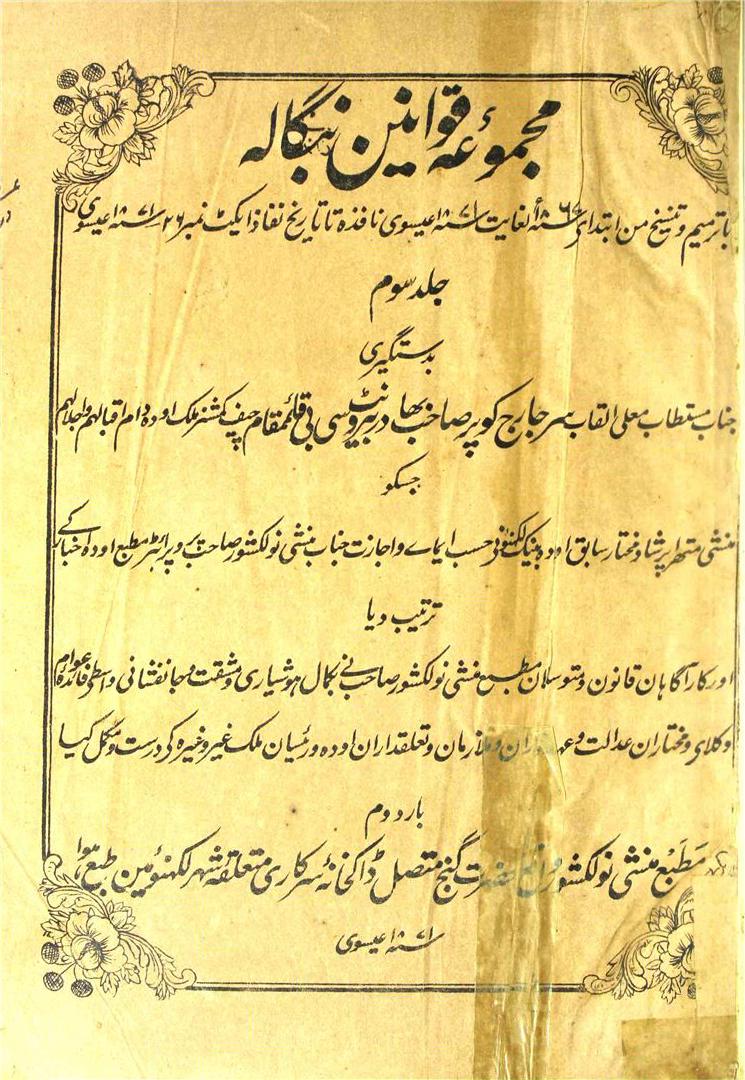 مجموعۂ قوانین بنگالہ
باترمیم و تنسیخ من ابتداے لغایت سنہ ۱۸۷۱ عیسوی نافذہ تا تاریخ نفاذ ایکٹ نمبر ۲۶ سنہ ۱۸۷۱ عیسوی
جلد سوم
بدستگیری
جناب مستطاب معلی القاب سر جارج کوپر صاحب بہادر بیرونٹ سی بی قائمقام چیف کمشنر ملک اودہ دام اقبالہم واجلالہم
جسکو
منشی متھرا پرشاد مختار سابق اودہ بینک لکھنؤ نے حسب ایماے و اجازت جناب منشی نولکشور صاحب پروپرائٹر مطبع اودہ اخبار کے
ترتیب دیا
اور کارآگاہان قانون و متوسلان مطبع منشی نولکشور صاحب نے بکمال ہوشیاری و مشقت و جانفشانی واسطے فائدہ عوام
وکلای و مختاران عدالت و ملازمان و تعلقداران اودہ و رئیسان ملک غیر وغیرہ کی درست و مکمل کیا
بار دوم
مطبع منشی نولکشور واقع حضرت گنج متصل ڈاکخانۂ سرکاری متعلقۂ شہر لکھنؤ مین طبع ہوا
سنہ ۱۸۷۱ عیسوی